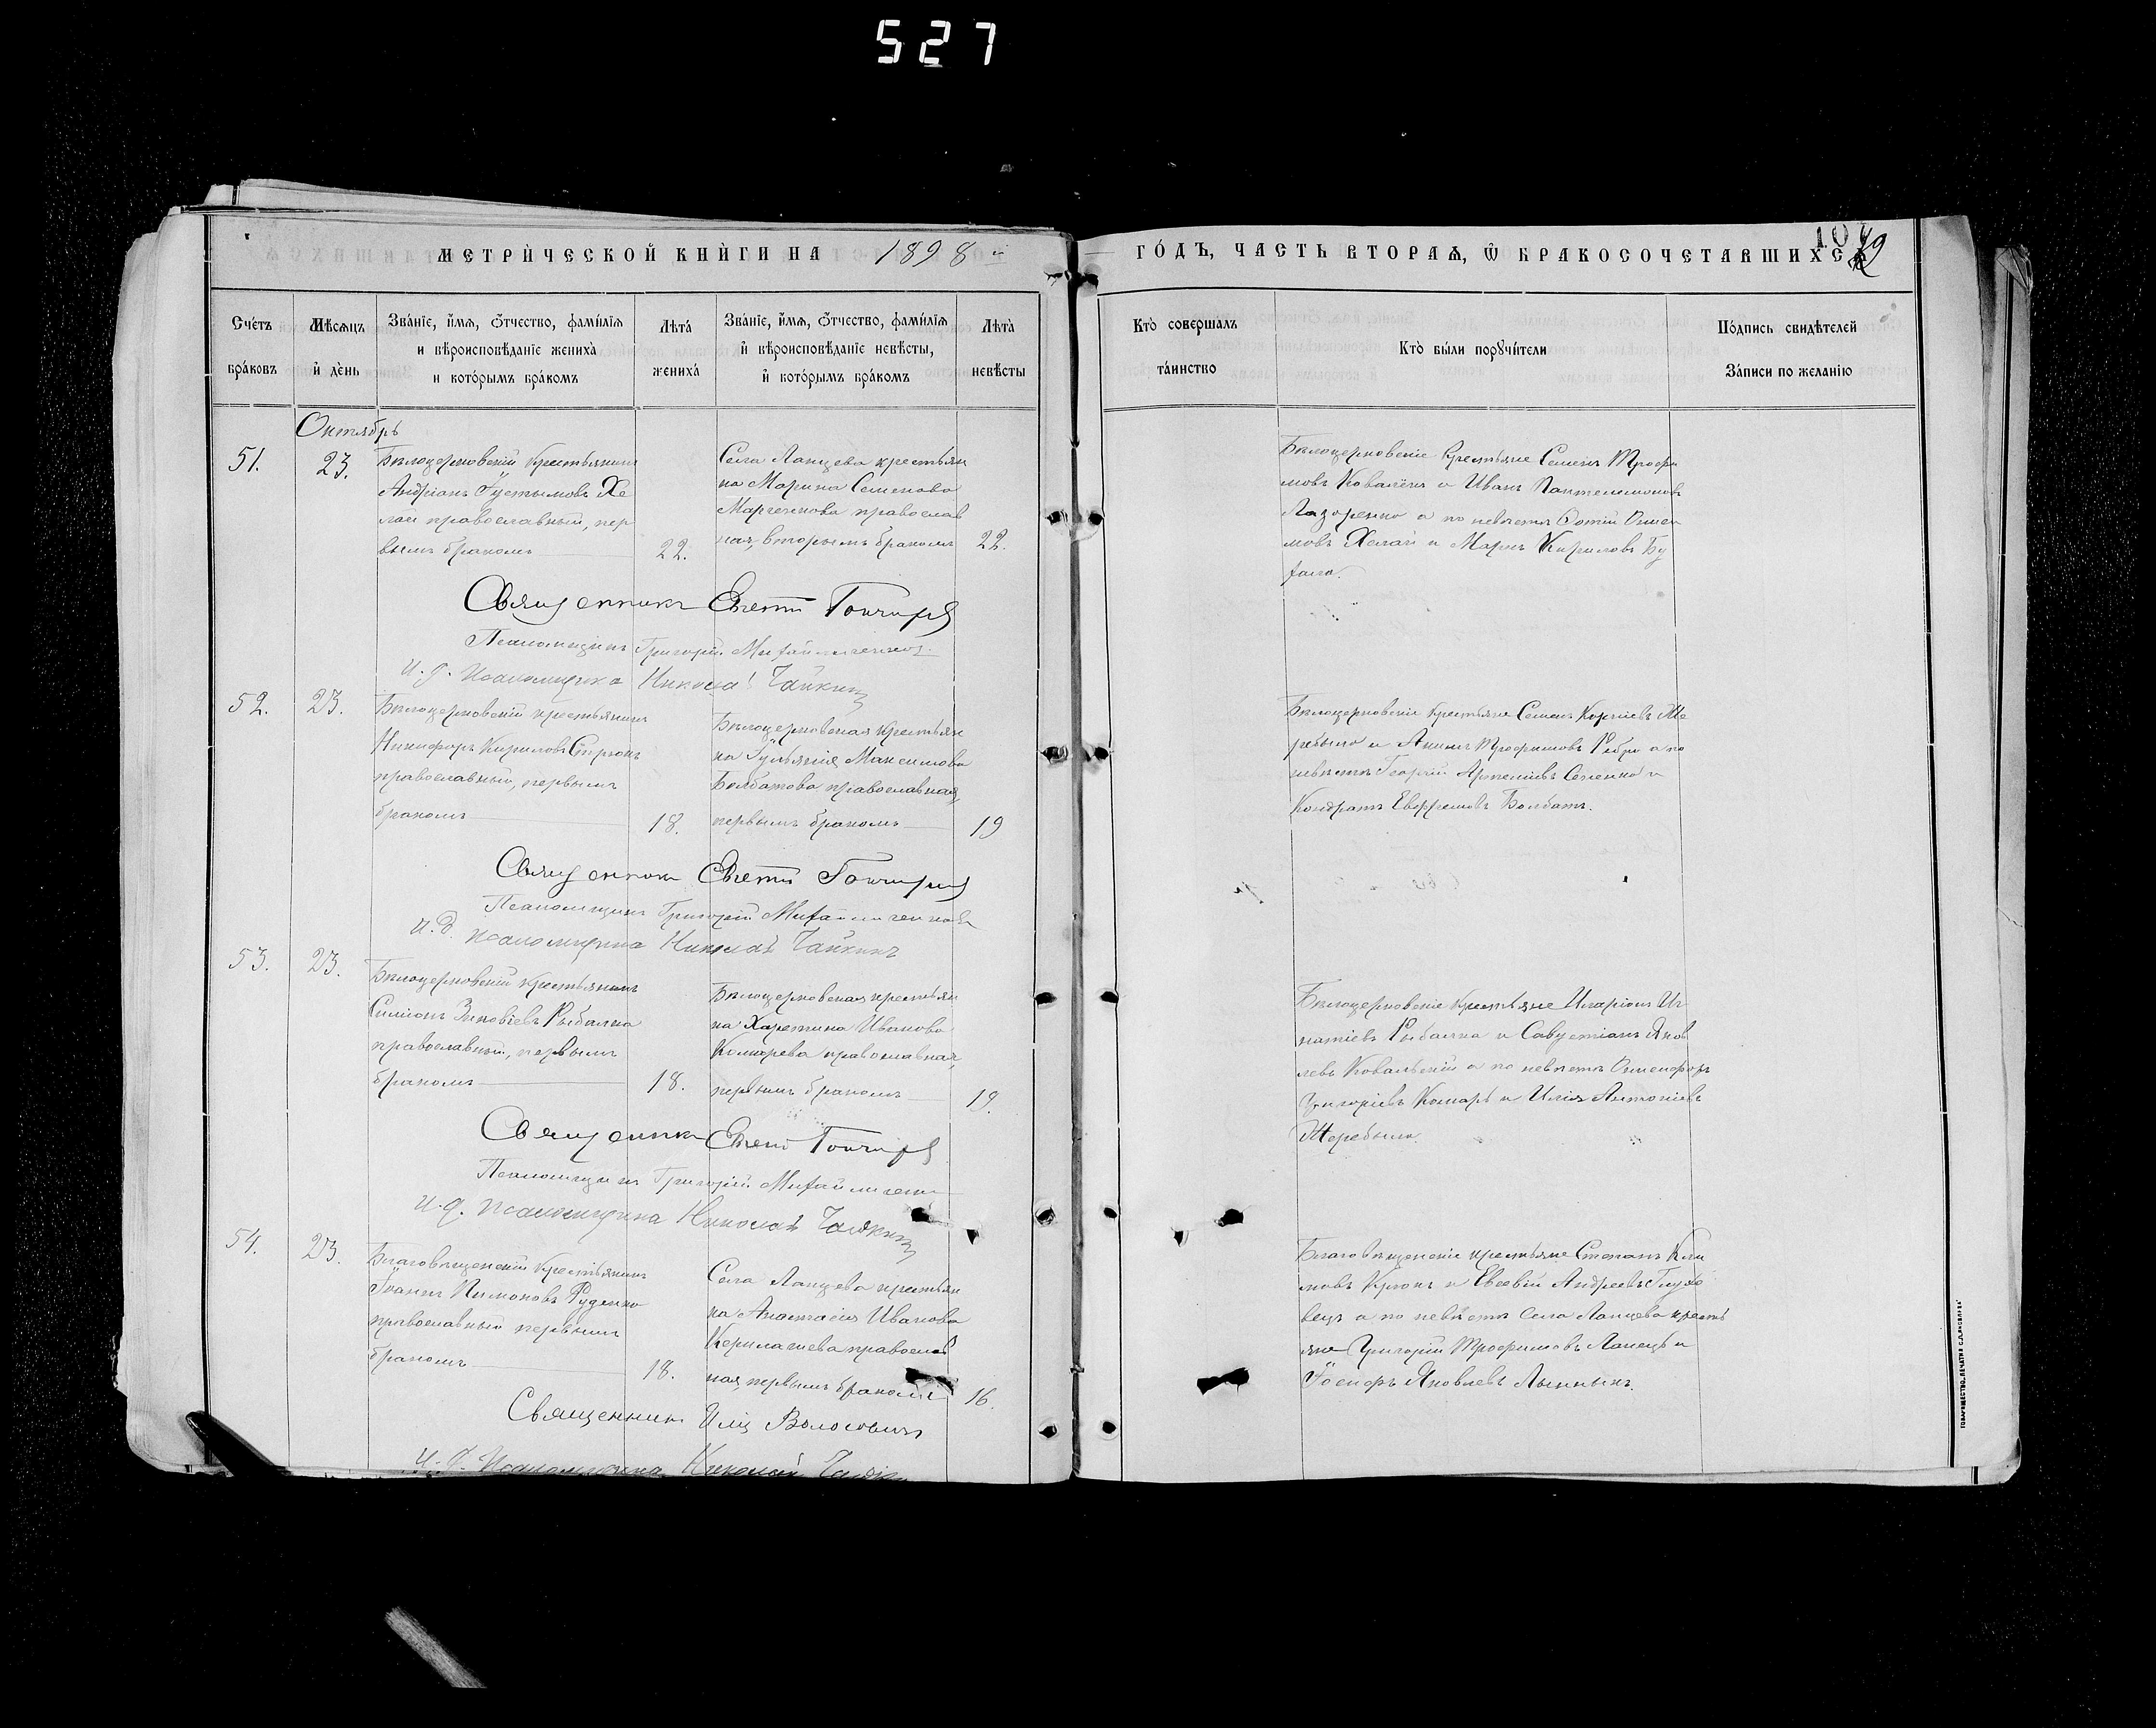 527
МЕТРИ́ЧЕСКОЙ КНИ́ГИ НА 1898 й
ГО́ДЪ, ЧАСТЬ ВТОРАѦ, Ѿ БРАКОСОЧЕТАВШИХСѦ
Сче́тъ бра́ковъ
Мѣ́сѧцъ и҆ де́нь
Зва́нїе, и҆́мѧ, ѻ҆́тчество, фами́лїѧ и вѣроисповѣ́данїе жениха̀ и кото́рымъ бра́комъ
Лѣта̀ жениха̀
Зва́нїе, и҆́мѧ, ѻ҆́тчество, фами́лїѧ и҆ вѣроисповѣ́данїе невѣ́сты, и҆ кото́рымъ бра́комъ
Лѣта̀ невѣ́сты
Кто̀ соверша́лъ та́инство
Кто̀ бы́ли порꙋчи́тели
По́дпись свидѣ́телей За́писи по жела́нїю
Октябрь
51.
23.
Бѣлоцерковскій крестьянинъ
Андріанъ Густымовъ Хе
лай православный, пер
вымъ бракомъ
22.
Села Ланцева крестьян
ка Марина Семенова
Марченкова православ
ная, вторымъ бракомъ
22.
Бѣлоцерковскіе крестьяне Семенъ Трофи
мовъ Коваленко и Иванъ Пантелемоновъ
Лазоренко а по невѣстѣ Фотій
мовъ Хелай и Марко Кириловъ Бу
Священникъ Гончаровъ
Псаломщикъ Григорій Михайличенко
И. д. Псаломщика Николай Чайкинъ
52.
23.
Бѣлоцерковскій крестьянинъ
Никифоръ Кириловъ Стрюкъ
православный, первымъ
бракомъ
18.
Бѣлоцерковская крестьян
ка Гульянія Максимова
Болбатова православная,
первымъ бракомъ
19
Бѣлоцерковскіе крестьяне Семенъ Корніевъ Же
ребыло и Акимъ Трофимовъ Рябри а по
невѣстѣ Георгій Артемиевъ Сененко и
Кондратъ Евфремовъ Болбатъ.
Священникъ Гончаровъ
Псаломщикъ Григорій Михайличенко
И. д. псаломщика Николай Чайкинъ
53.
23.
Бѣлоцерковскій крестьянинъ
Симіонъ Зиновіевъ Рыбалка
православный, первымъ
бракомъ
18.
Бѣлоцерковская крестьян
ка Харетина Иванова
Комарева православная,
первымъ бракомъ
19.
Бѣлоцерковскіе крестьяне Иларіонъ Иг
натіевъ Рыбалка и Савустіанъ Яков
левъ Ковальскій а по невѣстѣ
Григоріевъ Комаръ и Илія Антоніевъ
Жеребыло.
Священникъ Гончаровъ
Псаломщикъ Григорій Михайличенко
И. д. псаломщика Николай Чайкинъ
54.
23.
Благовѣщенскій крестьянинъ
Іоаннъ Пимоновъ Руденко
православный первымъ
бракомъ
18.
Села Ланцева крестьян
ка Анастасія Иванова
православ
ная, первымъ бракомъ
16.
Благовѣщенскіе крестьяне Степанъ Кли
мовъ Крюкъ и Евсевій Андреевъ Глухо
вецъ а по невѣстѣ села Ланцева кресть
яне Григорій Трофимовъ Ланецъ и
Іосифъ Яковлевъ Лынникъ.
Священникъ Илія Волосовичъ
И. д. Псаломщика Николай Чайкинъ